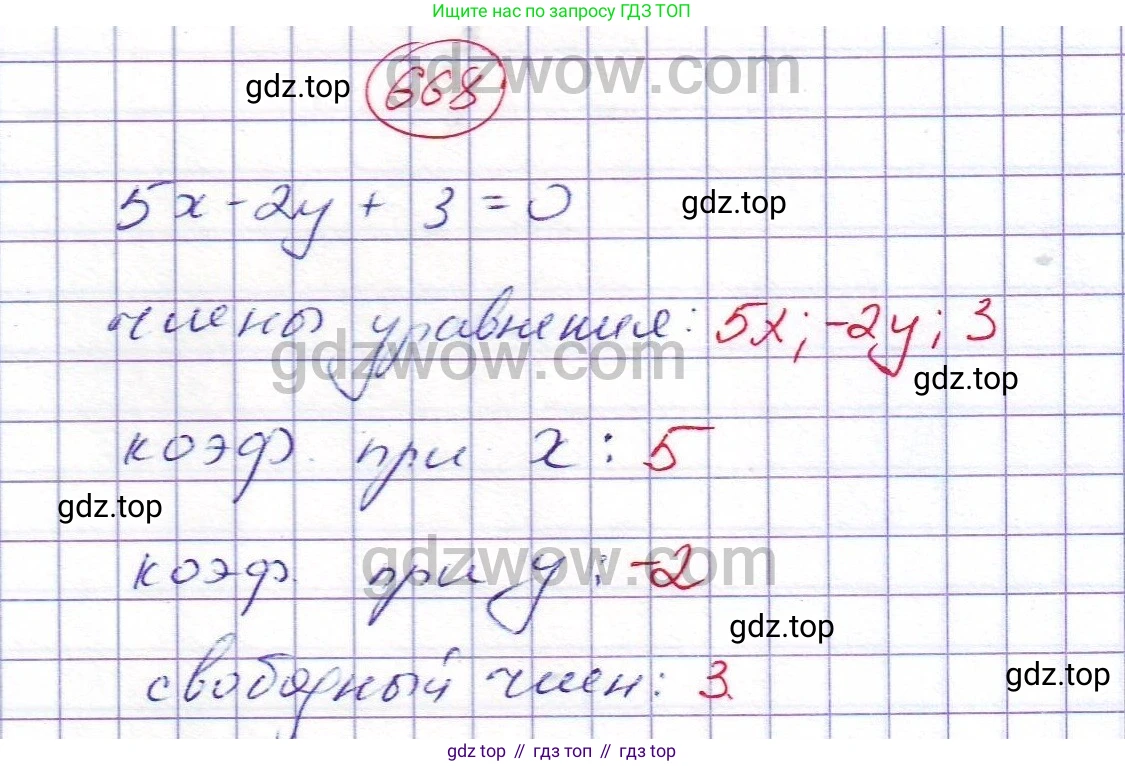 Ищите нас по запросу ГДЗ ТОП
gdzwow.com
gdz.top
668
5x - 2y + 3 = 0
gdz.top
члены уравнения: 5x; -2y; 3
gdzwow.com
gdz.top
коэф. при x: 5
gdz.top
коэф. при y: -2
gdzwow.com
gdz.top
свободный член: 3.
gdz.top
gdz top // гдз топ // гдз top